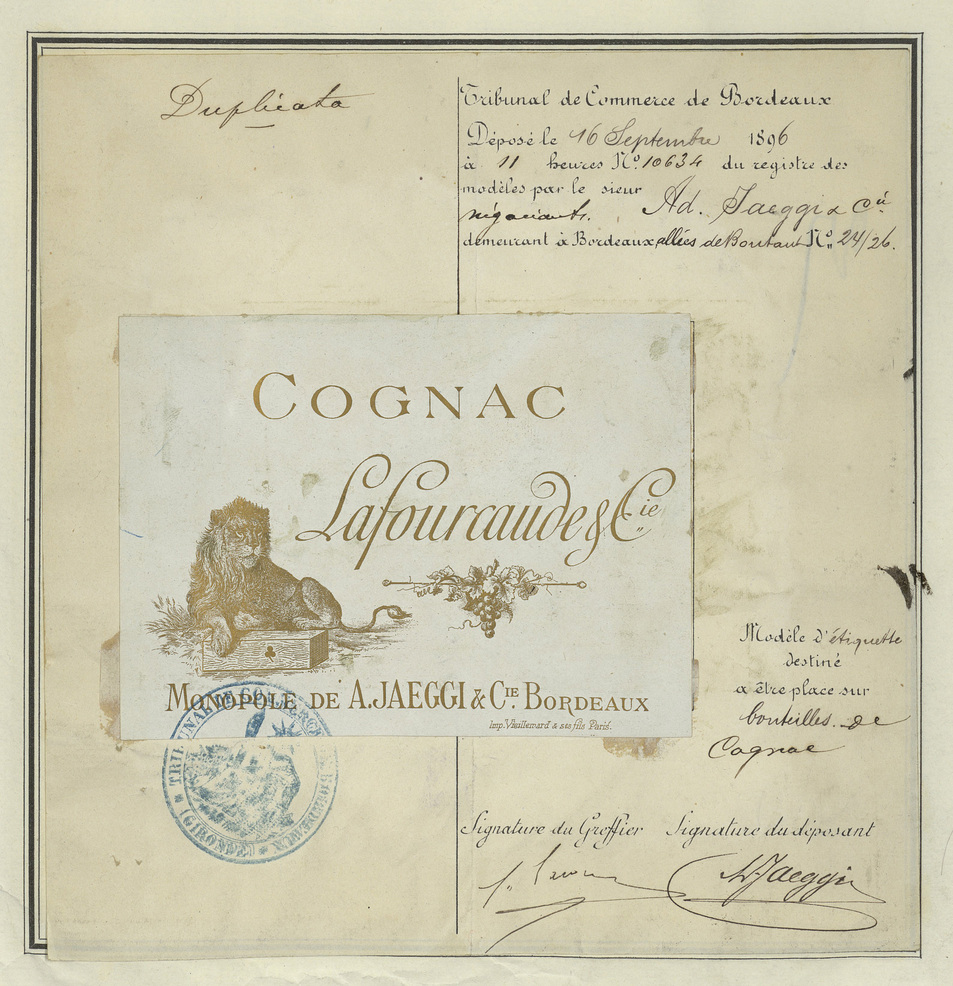 Duplicata
Tribunal de Commerce de Bordeaux
Déposé le 16 Septembre 1896
à 11 heures N.º 10634 du registre des
modèles par le sieur Ad. Jaeggi & Cie
négociants.
demeurant à Bordeaux allées de Boutaut N.º 24/26.
COGNAC
Lafourcaude & Cie
MONOPOLE DE A. JAEGGI & CIE. BORDEAUX
Imp. Vieillemard & ses fils Paris.
Modèle d'étiquette
destiné
a être place sur
bouteilles de
Cognac
TRIBUNAL DE COMMERCE DE BORDEAUX
(GIRONDE)
Signature du Greffier Signature du déposant
Jaeggi